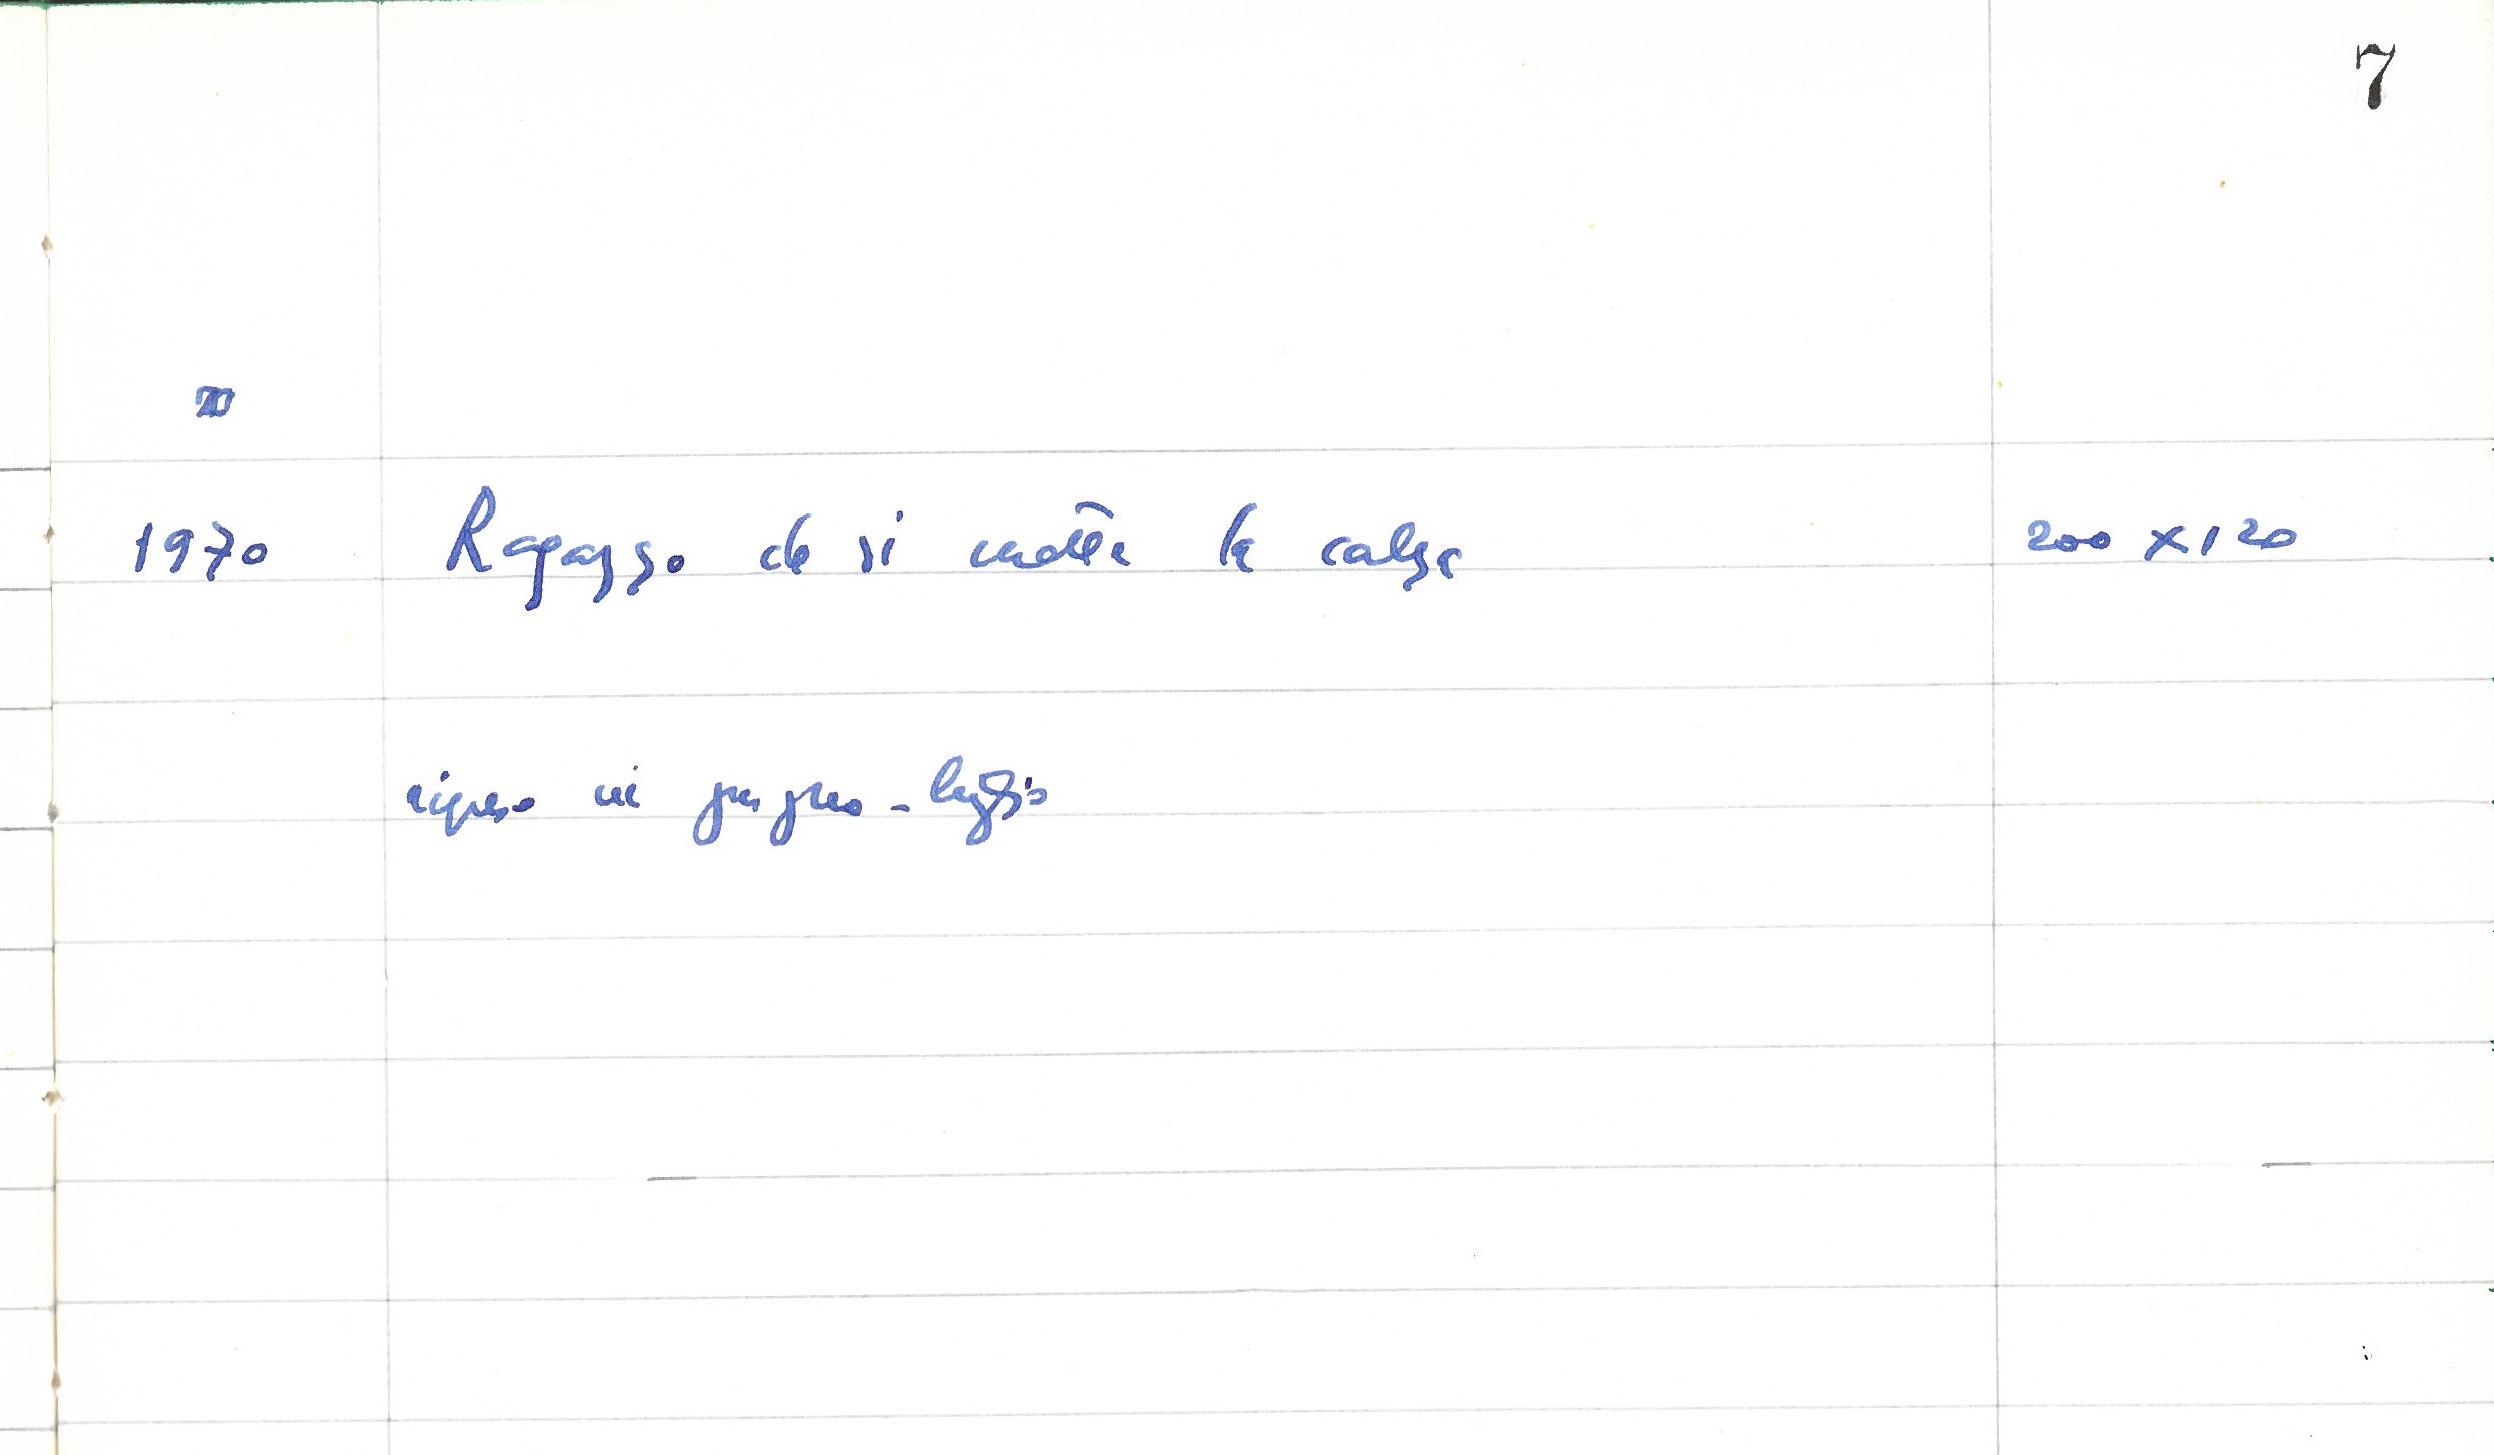 7
III
1970 Ragazzo che si mette la calza 200 x 120
ripreso in giugno - luglio